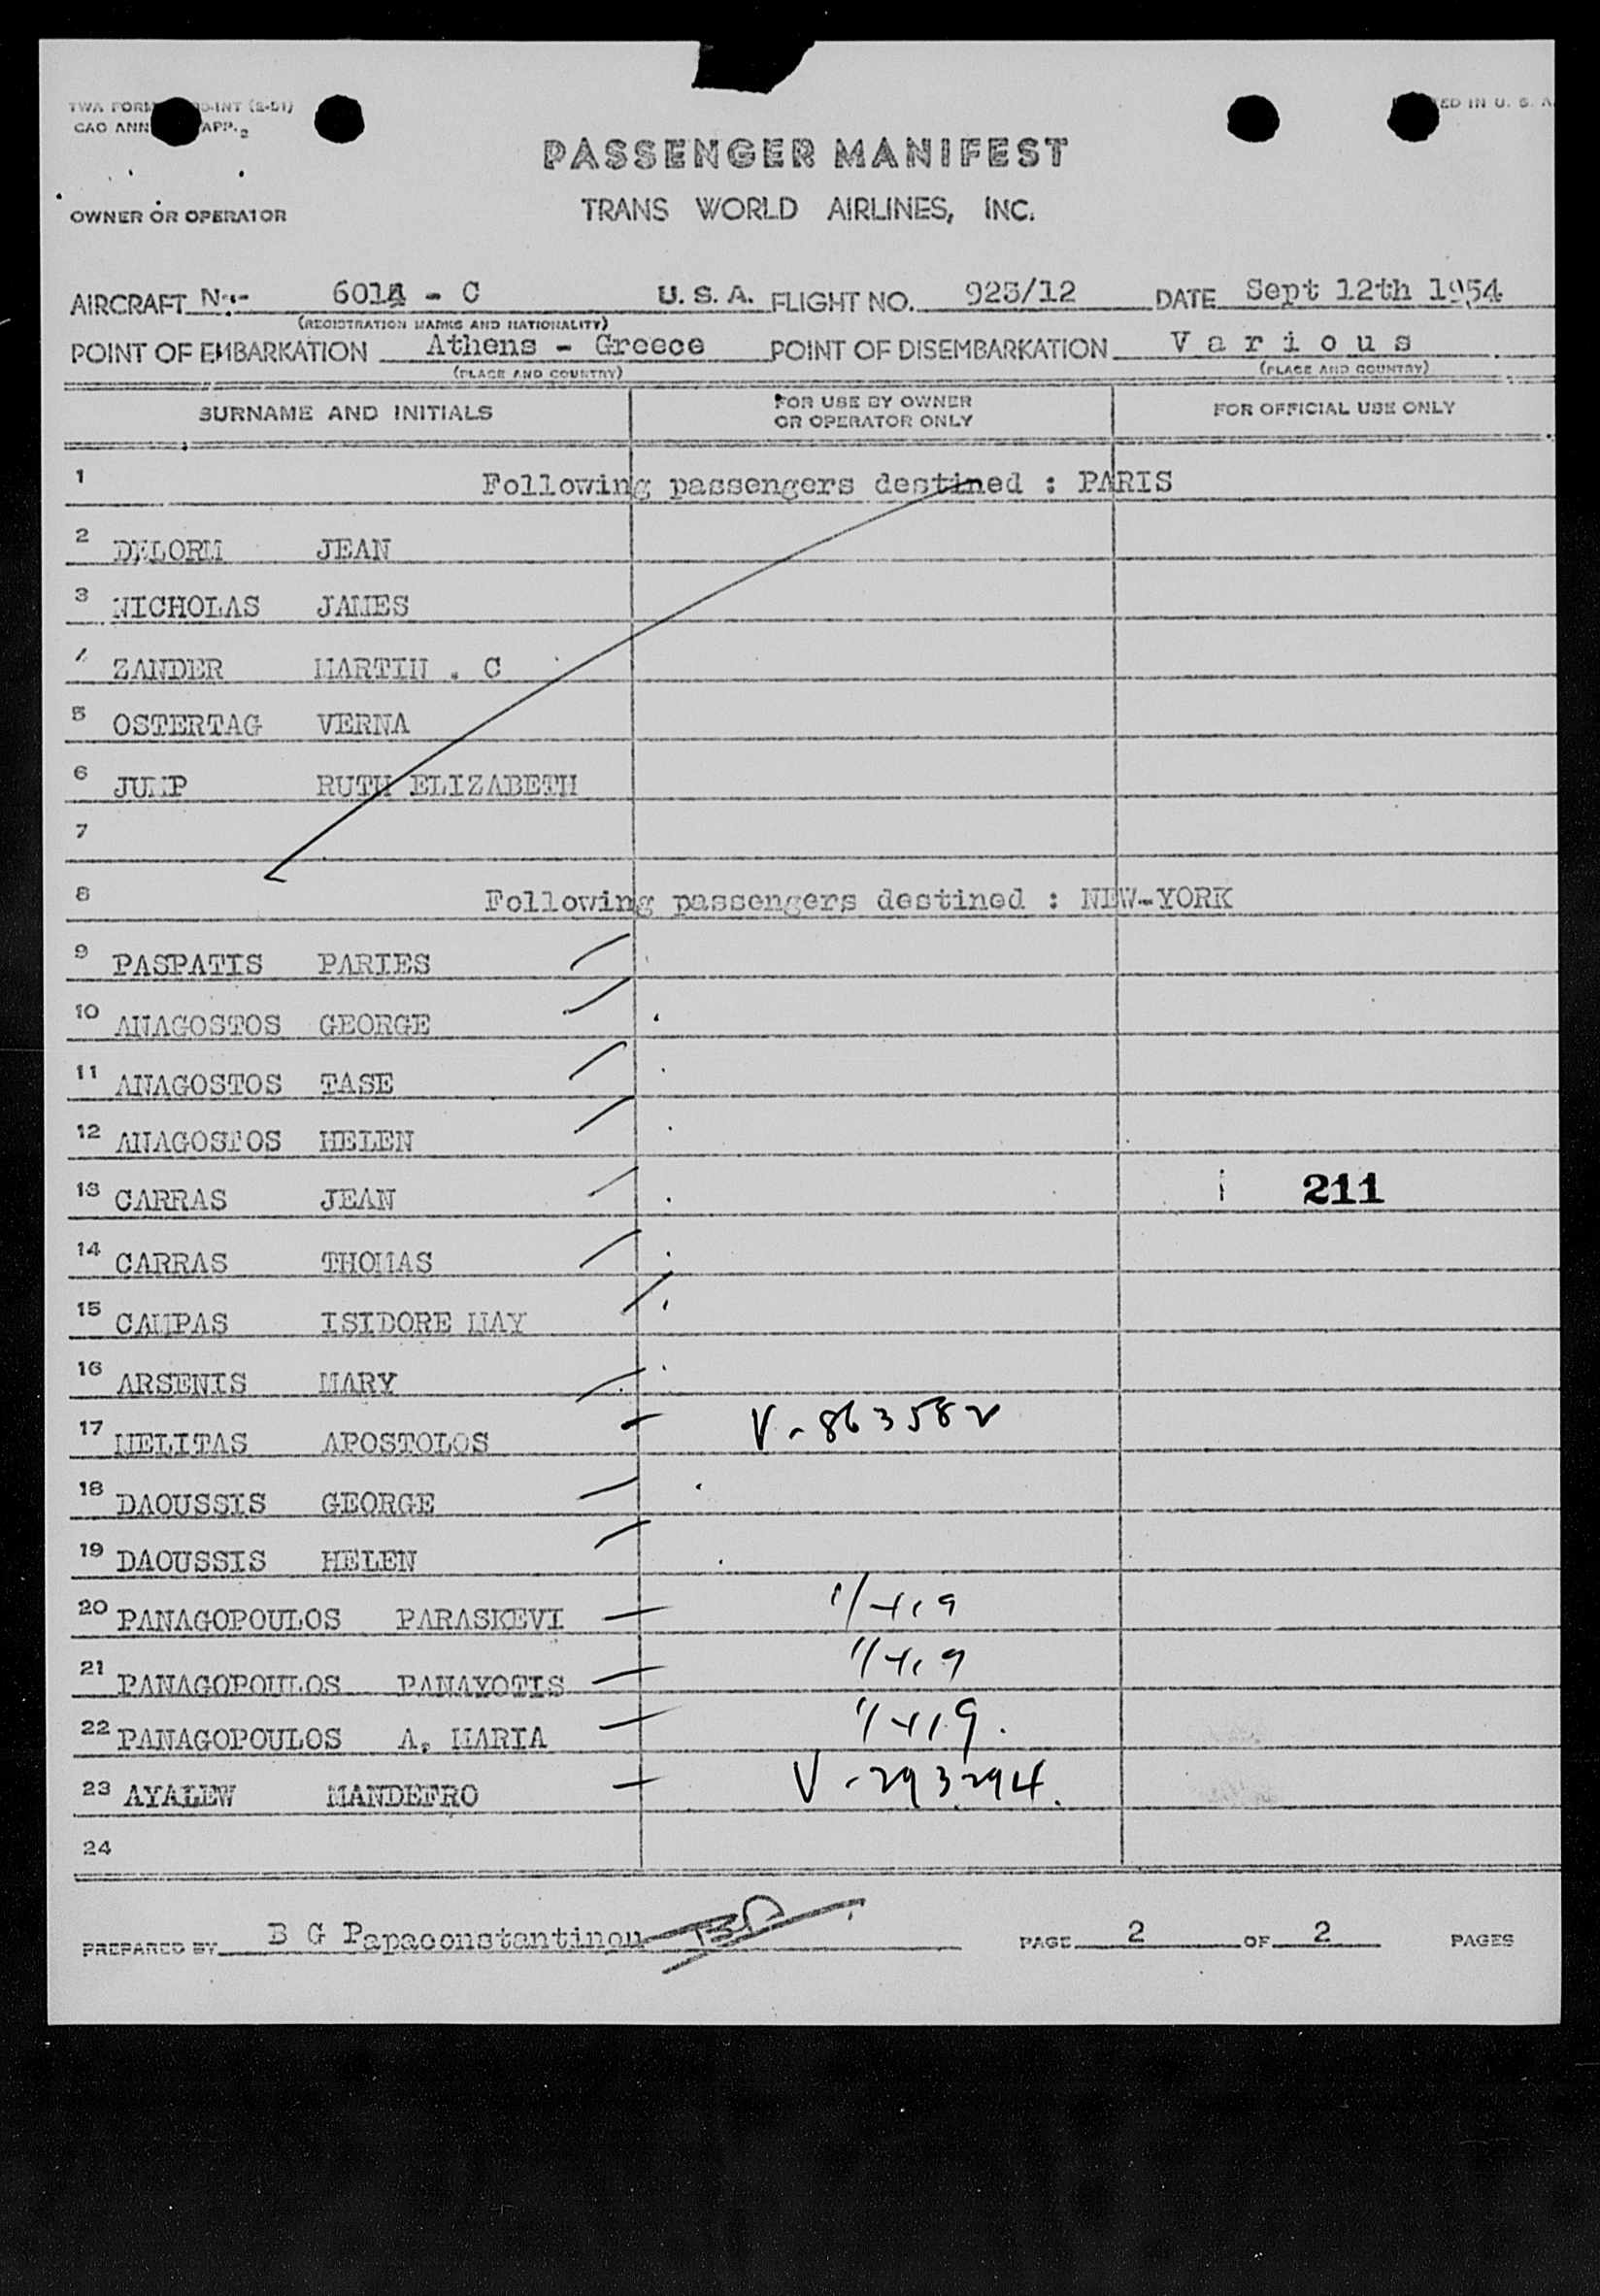 TWA FORM -INT (2-51)
CAO ANN APP. 2
ED IN U. S. A.
PASSENGER MANIFEST
OWNER OR OPERATOR
TRANS WORLD AIRLINES, INC.
AIRCRAFT N.- 601 - C U. S. A. FLIGHT NO. 923/12 DATE Sept 12th 1954
(REGISTRATION MARKS AND NATIONALITY)
POINT OF EMBARKATION Athens - Greece POINT OF DISEMBARKATION Various
(PLACE AND COUNTRY) (PLACE AND COUNTRY)
SURNAME AND INITIALS FOR USE BY OWNER OR OPERATOR ONLY FOR OFFICIAL USE ONLY
1 Following passengers destined : PARIS
2 DELORM JEAN
3 NICHOLAS JAMES
4 ZANDER MARTIN . C
5 OSTERTAG VERNA
6 JUMP RUTH ELIZABETH
7
8 Following passengers destined : NEW-YORK
9 PASPATIS PARIES
10 ANAGOSTOS GEORGE
11 ANAGOSTOS TASE
12 ANAGOSTOS HELEN
13 CARRAS JEAN 211
14 CARRAS THOMAS
15 CAMPAS ISIDORE MAY
16 ARSENIS MARY
17 MELITAS APOSTOLOS V-863582
18 DAOUSSIS GEORGE
19 DAOUSSIS HELEN
20 PANAGOPOULOS PARASKEVI
21 PANAGOPOULOS PANAYOTIS
22 PANAGOPOULOS A. MARIA
23 AYALEW MANDEFRO V-293294.
24
PREPARED BY B G Papaconstantinou PAGE 2 OF 2 PAGES